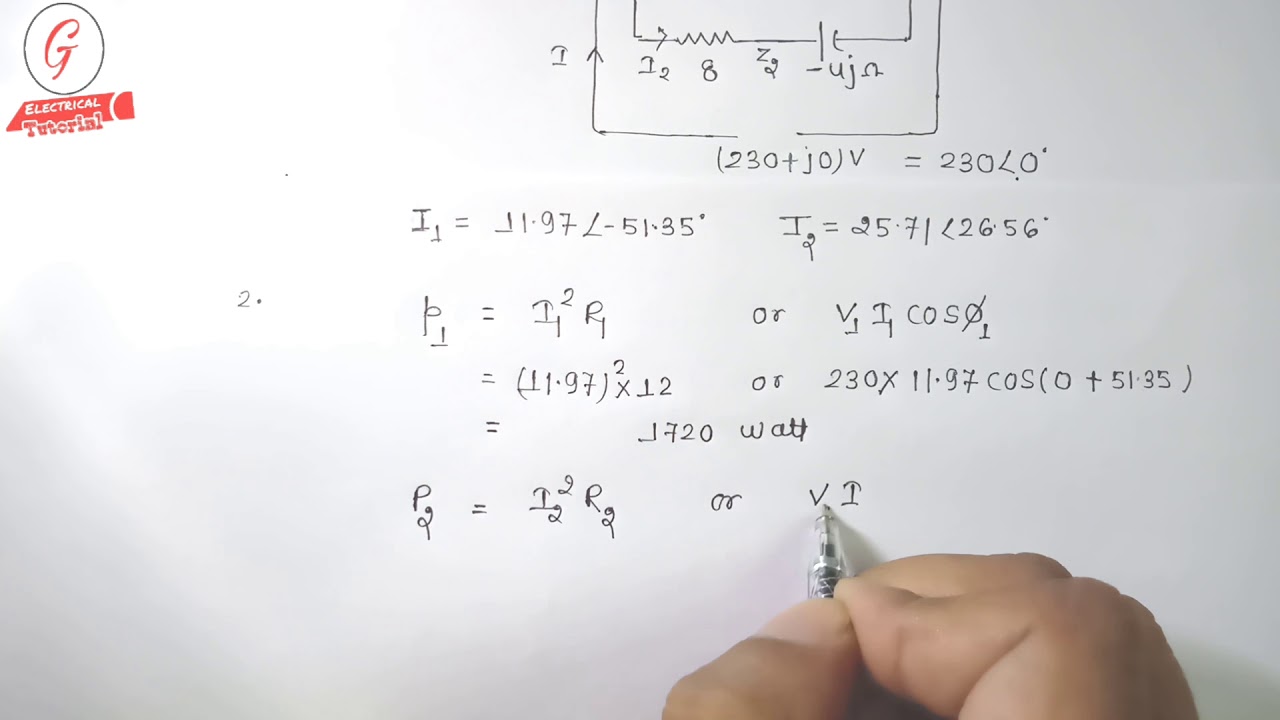 G
ELECTRICAL
Tutorial
I
I₂ 8 Z₂ -4jΩ
(230+j0)V = 230∠0°
I₁ = 11.97∠-51.35° I₂ = 25.71∠26.56°
2.
P₁ = I₁² R₁ or V₁ I₁ COSϕ₁
= (11.97)² × 12 or 230 × 11.97 COS(0 + 51.35)
= 1720 watt
P₂ = I₂² R₂ or V I